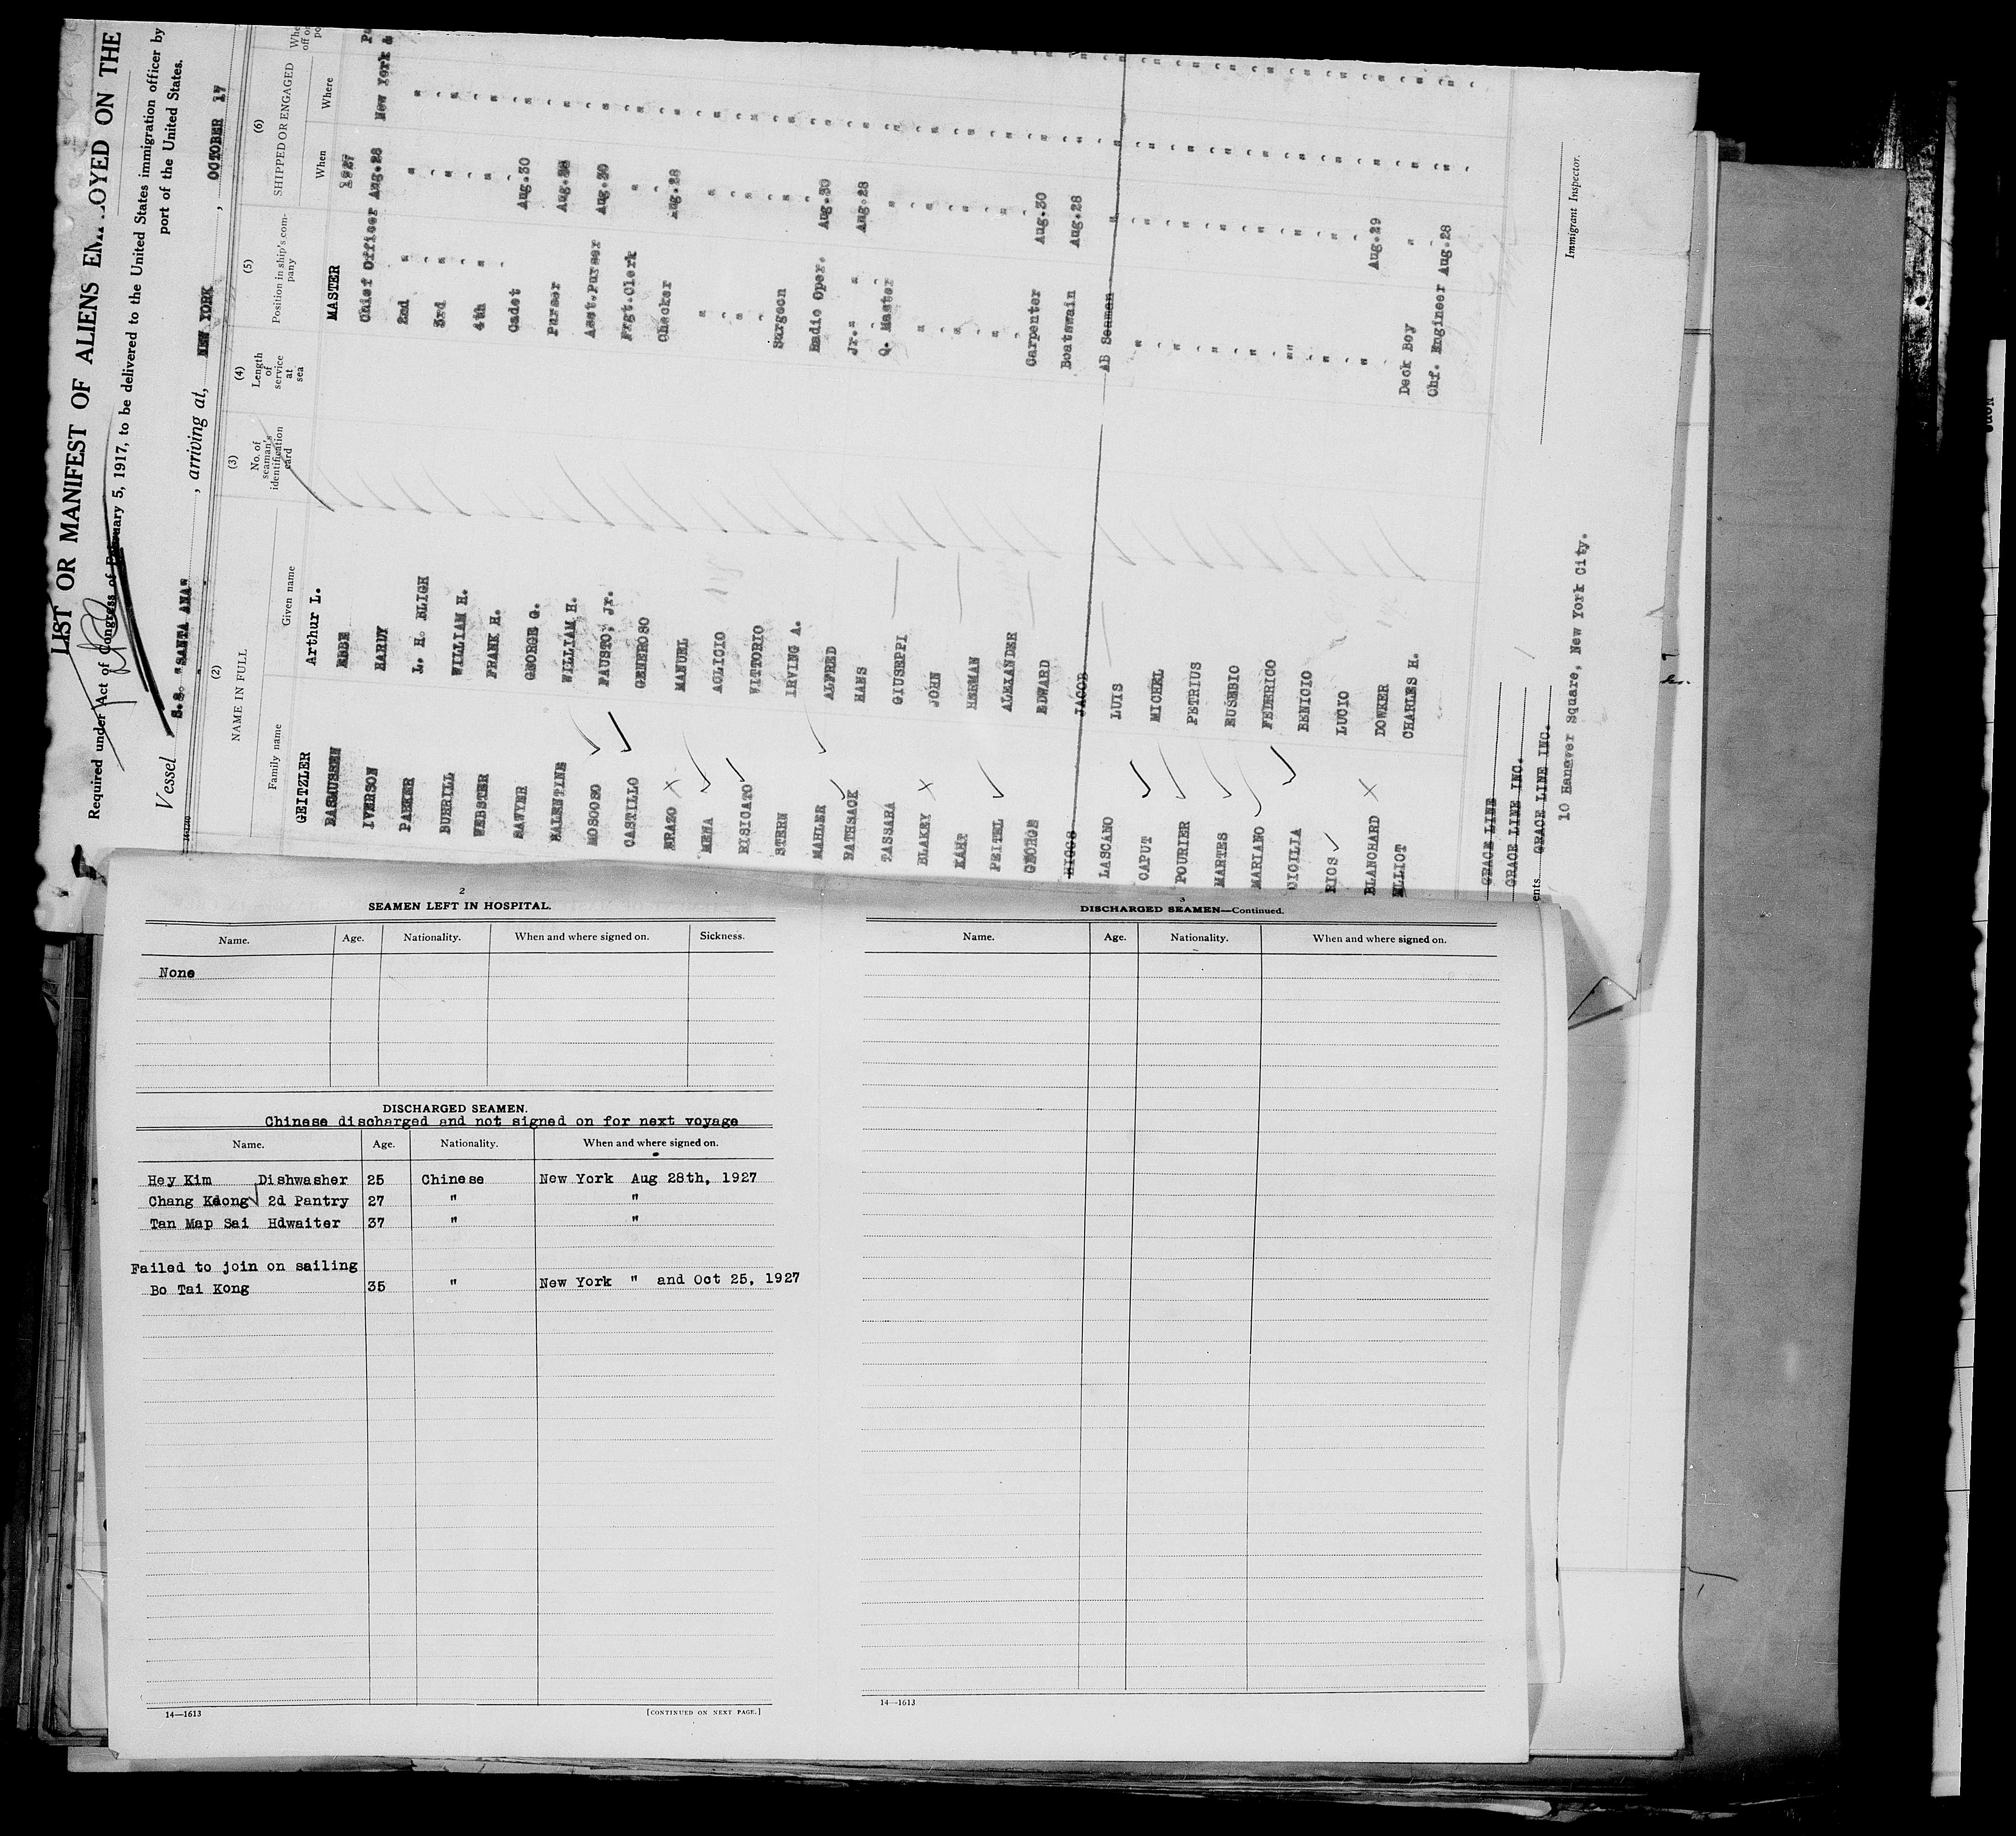 LIST OR MANIFEST OF ALIENS EMPLOYED ON THE
Required under Act of Congress of February 5, 1917, to be delivered to the United States immigration officer by
port of the United States.
Vessel S.S. "SANTA ANA" , arriving at, NEW YORK , OCTOBER 17
(2) (3) (4) (5) (6)
NAME IN FULL No. of seaman's identification card Length of service at sea Position in ship's company SHIPPED OR ENGAGED
Family name Given name When Where
GEITZLER Arthur L. MASTER 1927
RASMUSSEN EBBE Chief Officer Aug.28 New York &
IVERSON HARDY 2nd " " "
PARKER L. H. BLIGH 3rd " " "
BURRILL WILLIAM H. 4th " " "
WEBSTER FRANK H. Cadet Aug.30 "
SAWYER GEORGE G. Purser Aug.28 "
BALENTINE WILLIAM H. Asst.Purser Aug.30 "
MOSCOSO FAUSTO, Jr. Frgt.Clerk " "
CASTILLO GENEROSO Checker Aug.28 "
ERAZO MANUEL " " "
MENA AGLICIO " " "
RISIGATO VITTORIO " " "
STERN IRVING A. Surgeon " "
MAHLER ALFRED Radio Oper. Aug.30 "
RATHSACK HANS Jr." " Aug.28 "
TASSARA GIUSEPPI Q. Master " "
BLAKEY JOHN " " "
KAHT HERMAN " " "
PEITEL ALEXANDER " " "
GEORGE EDWARD Carpenter Aug.30 "
HIGGS JACOB Boatswain Aug.28 "
LASCANO LUIS AB Seaman " "
CAPUT MICHEL " " "
POURIER PETRIUS " " "
MARTES EUSEBIO " " "
MARIANO FEDERICO " " "
CICILIA BENICIO " " "
RIOS LUCIO " " "
BLANCHARD DOWER Deck Boy " "
ELLIOT CHARLES H. Chf. Engineer Aug.28 "
Aug.29
GRACE LINE
GRACE LINE INC.
GRACE LINE INC.
10 Hanover Square, New York City.
Immigrant Inspector.
2
SEAMEN LEFT IN HOSPITAL.
Name. Age. Nationality. When and where signed on. Sickness.
None
DISCHARGED SEAMEN.
Chinese discharged and not signed on for next voyage
Name. Age. Nationality. When and where signed on.
Hey Kim Dishwasher 25 Chinese New York Aug 28th, 1927
Chang Keong 2d Pantry 27 " "
Tan Map Sai Hdwaiter 37 " "
Failed to join on sailing
Bo Tai Kong 35 " New York " and Oct 25, 1927
14—1613 [CONTINUED ON NEXT PAGE.]
3
DISCHARGED SEAMEN—Continued.
Name. Age. Nationality. When and where signed on.
14—1613